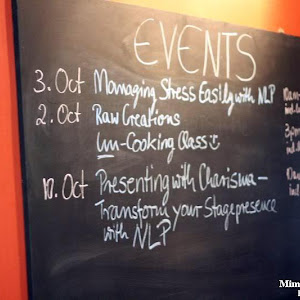 EVENTS
3. Oct Managing Stress Easily with NLP
2. Oct Raw Creations
Un-Cooking Class
10. Oct Presenting with Charisma –
Transform your Stagepresence
with NLP